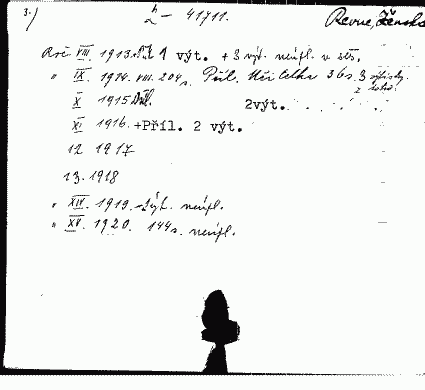 3./ h 2 - 41711. Revue, Ženská
Roč. VIII. 1913. Příl. 1 výt. + 3 výt. neúpl. v seš.
" IX. 1914. VIII. 204 s. Příl. 36 s. 3
X 1915 Příl. 2výt.
XI 1916. +Příl. 2 výt.
12 1917
13. 1918
" XIV. 1919. neúpl.
" XV. 1920. 144 s. neúpl.